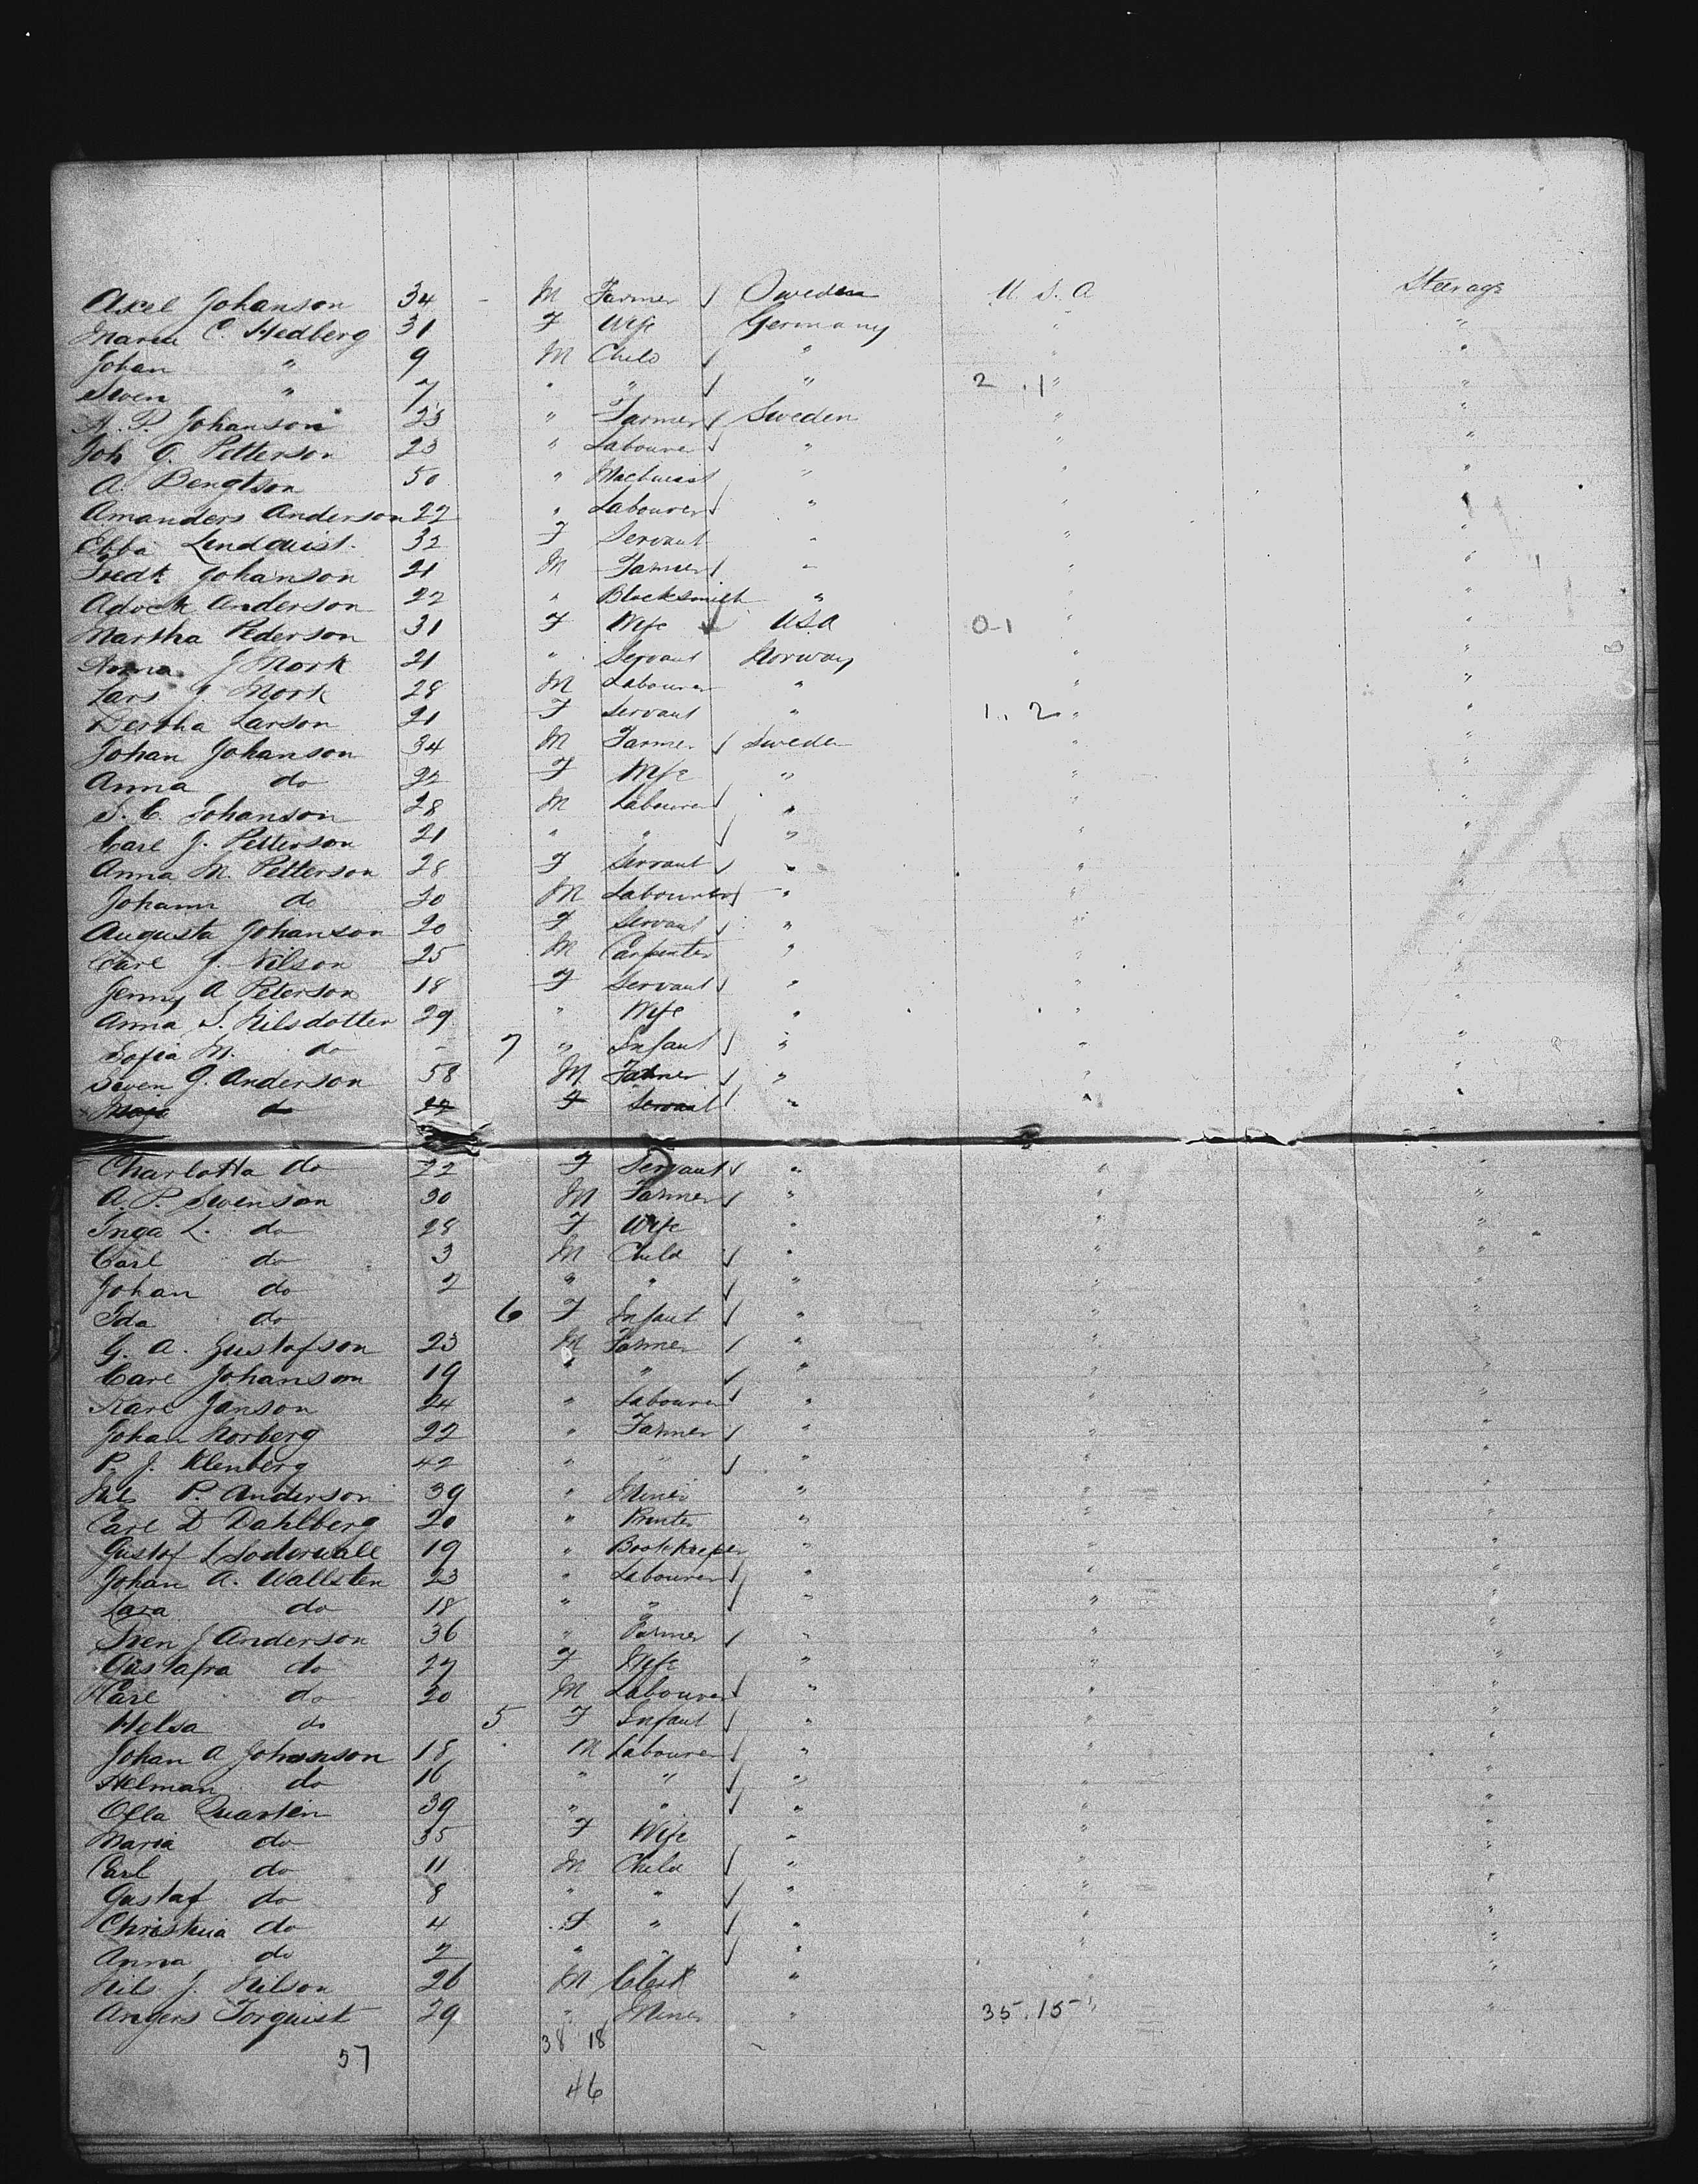 Axel Johanson 34 - M Farmer √ Sweden U. S. A Steerage
Maria C. Hedberg 31 F Wife Germany " "
Johan " 9 M Child √ " " "
Swen " 7 " " √ " 2 . 1 " "
A. P. Johanson 23 " Farmer √ Sweden " "
Joh O. Petterson 23 " Labourer √ " " "
A. Bengtson 50 " Machinist " " "
Amanders Anderson 22 " Labourer √ " " "
Ebba Lindquist 32 F Servant " " "
Fredk Johanson 21 M Farmer √ " " "
Anderson 22 " Blacksmith " " "
Martha Pederson 31 F Wife √ U.S.A 0-1 " "
Anna J Mork 21 " Servant Norway " "
Lars J. Mork 28 M Labourer " " "
Bertha Larson 21 F Servant " 1 . 2 " "
Johan Johanson 34 M Farmer √ Sweden " "
Anna do 22 F Wife " " "
S. C. Johanson 28 M Labourer √ " " "
Carl J. Petterson 21 " " √ " " "
Anna M. Petterson 28 F Servant √ " " "
Johann do 20 M Labourer √ " " "
Augusta Johanson 20 F Servant √ " " "
Carl J. Nilson 25 M Carpenter " " "
Jenny A Peterson 18 F Servant √ " " "
Anna S. Nilsdotter 29 " Wife " " "
Sofia M. do - 7 " Infant √ " " "
Swen G. Anderson 58 M Farmer √ " " "
Maja do 27 F Servant √ " " "
Charlotta do 22 F Servant √ " " "
A. P. Swenson 30 M Farmer √ " " "
Inga L. do 28 F Wife " " "
Carl do 3 M Child √ " " "
Johan do 2 " " √ " " "
Ida do 6 F Infant √ " " "
G. A. Gustafson 23 M Farmer √ " " "
Carl Johanson 19 " " √ " " "
Karl Janson 24 " Labourer √ " " "
Johan Norberg 22 " Farmer √ " " "
P. J. Klenberg 42 " " √ " " "
Nils P. Anderson 39 " Miner " " "
Carl D Dahlberg 20 " Printer " " "
Gustof L Soderwall 19 " Bookkeeper " " "
Johan A. Wallsten 23 " Labourer √ " " "
Lara do 18 " " √ " " "
Sven J Anderson 36 " Farmer √ " " "
Gustafva do 27 F Wife " " "
Carl do 20 M Labourer √ " " "
Helsa do 5 F Infant √ " " "
Johan A Johanson 18 M Labourer √ " " "
Helman do 16 " " √ " " "
Olla Quarten 39 " " √ " " "
Maria do 35 F Wife " " "
Carl do 11 M Child √ " " "
Gustaf do 8 " " √ " " "
Christina do 4 F " √ " " "
Anna do 2 " " √ " " "
Nils J. Nilson 26 M Clerk " " "
Angers Torquist 29 " Miner " 35 . 15 " "
57 38 18
46